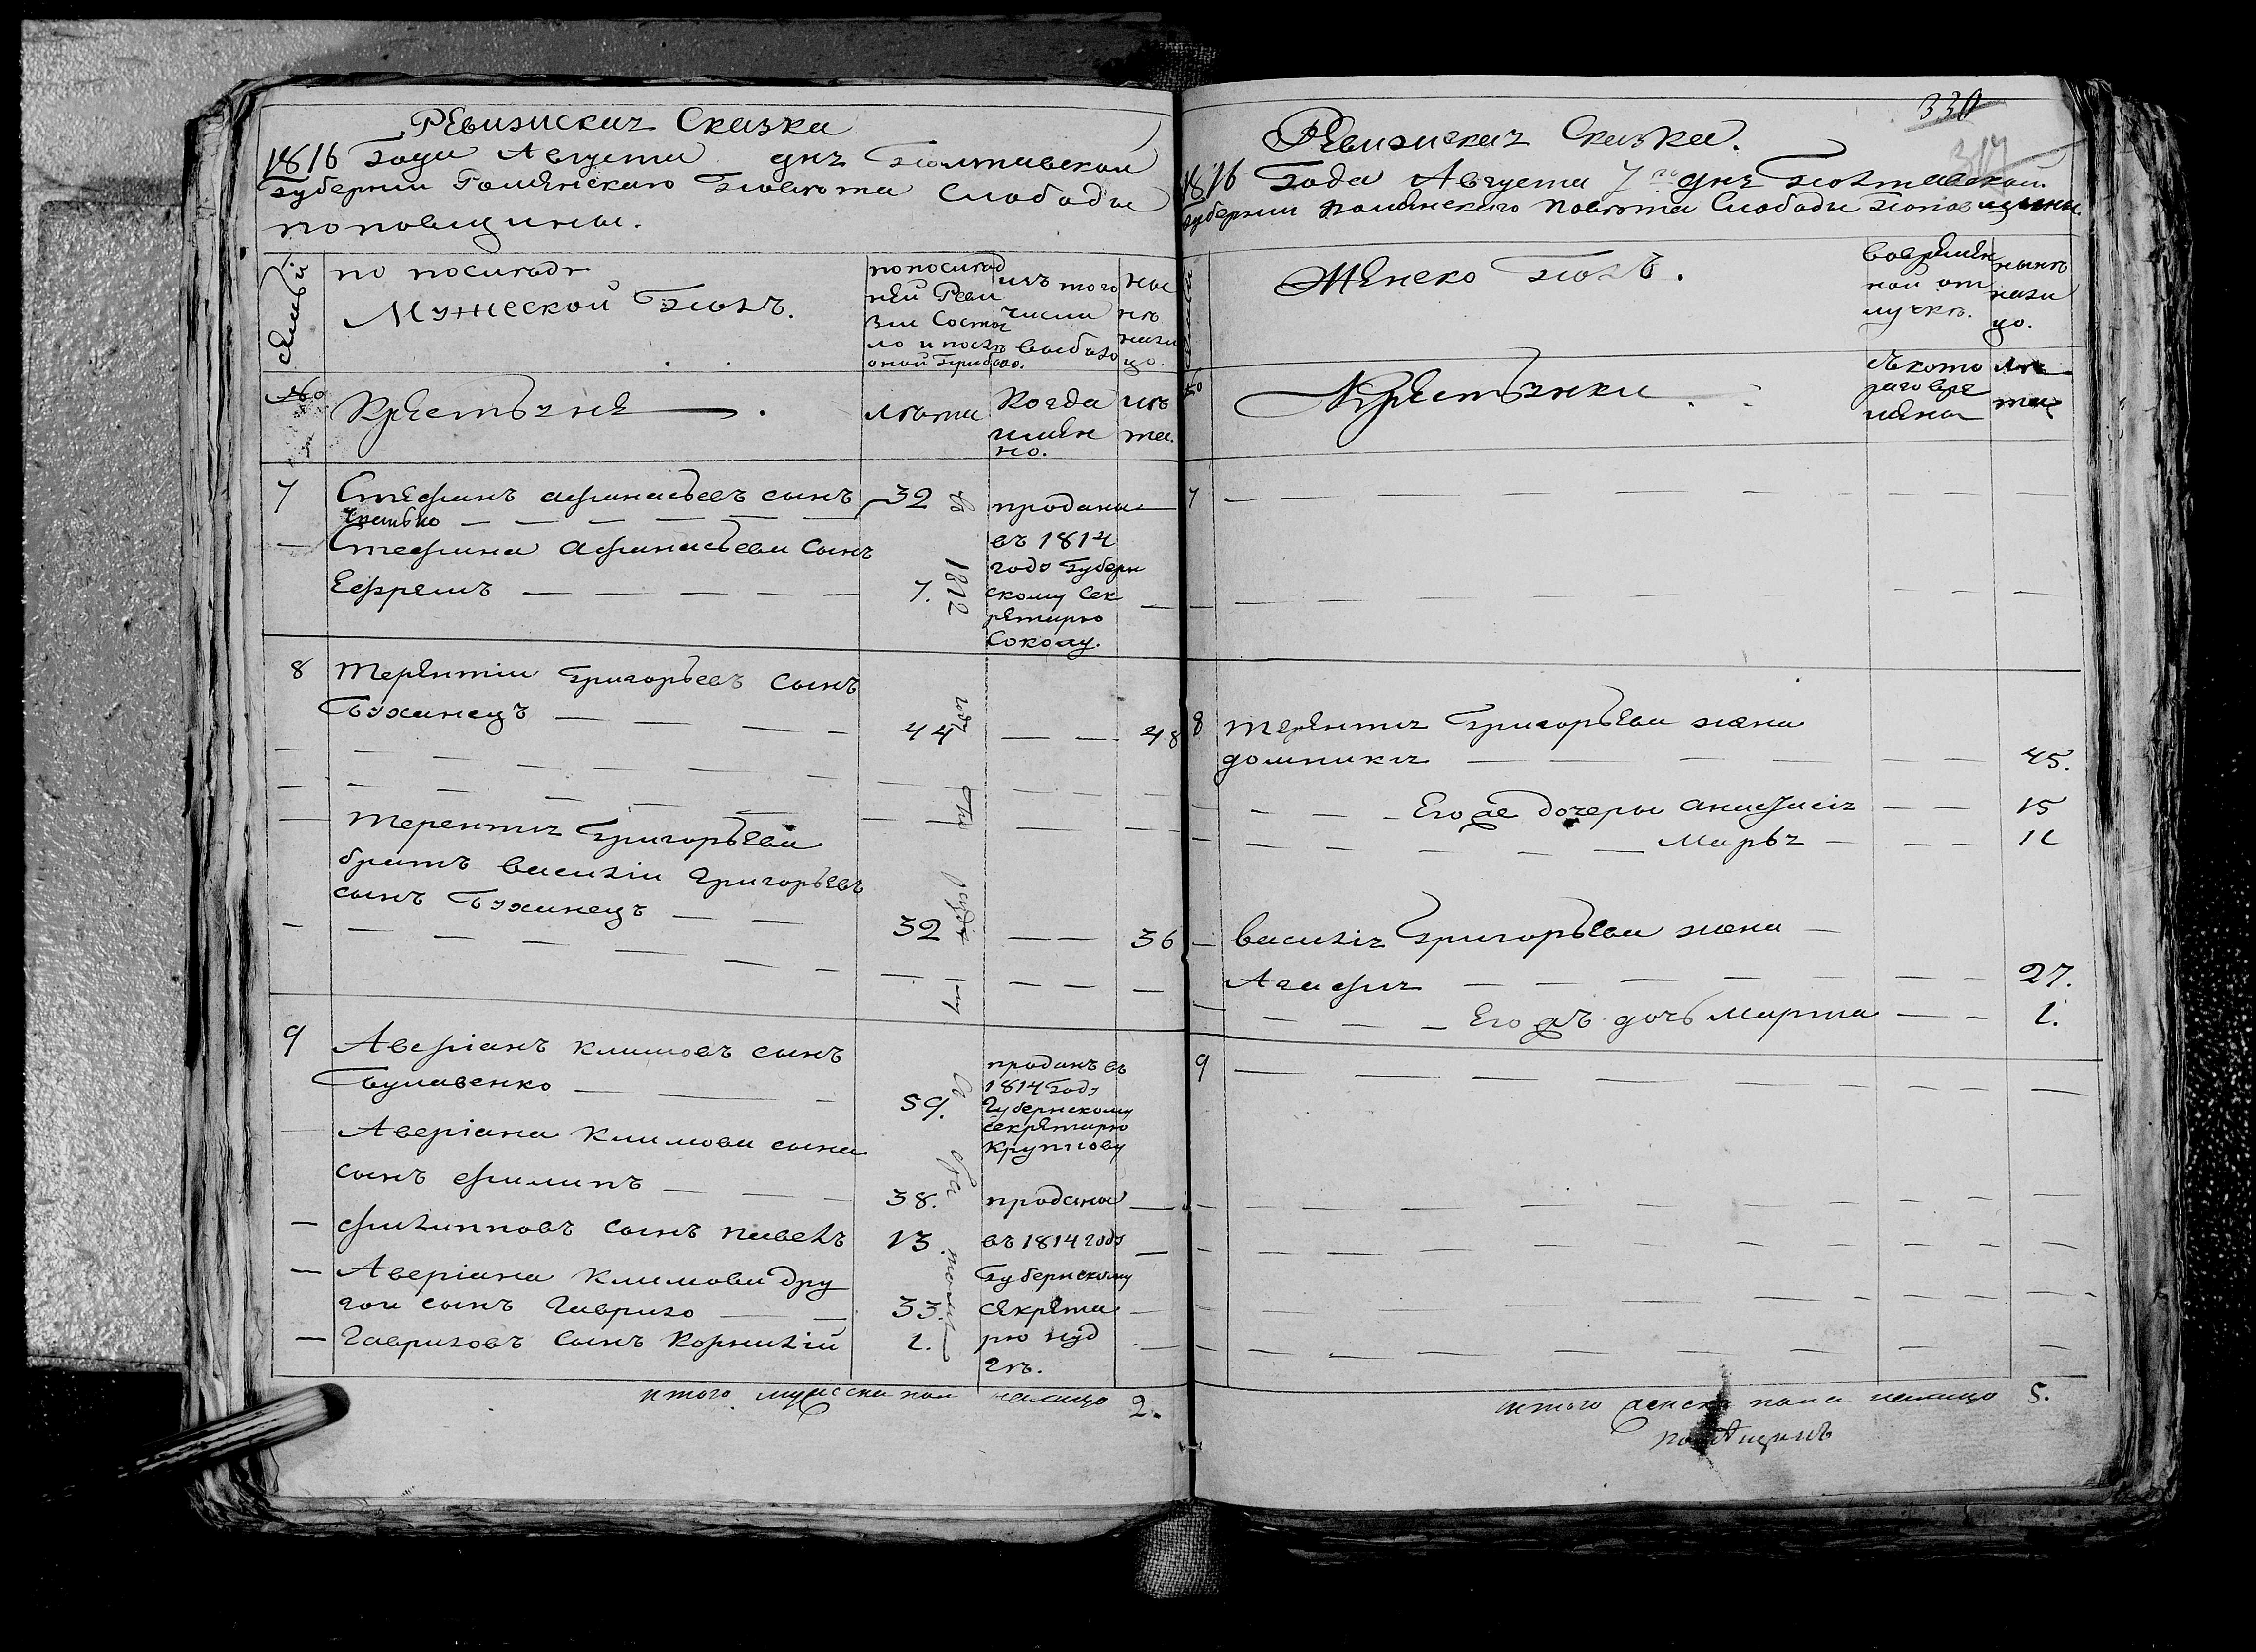 Ревизская Сказка
1816 Года Августа дня Полтавской
Губернии Роменского Повета Слободы
поповщины.
Семьи
по последн
Мужеской Полъ.
по послед
ней Реви
зіи Состоя
ло и послѣ
оной Прибыло.
изъ того
числа
выбыло
ны
нѣ
нали
цо.
№
Крестьяне
лѣта
Когда
имян
но.
лѣ
та.
7 Стефанъ афанасьевъ сынъ 32 продана
въ 1814
Стефана Афанасьева Сынъ
годѣ Губерн
Ефремъ 7. скому Сек
ретарю
Соколу.
1812
8 Терентіи Григорьевъ сынъ
Буханецъ 44 48
Терентия Григорьева
братъ василіи Григорьевъ
сынъ Буханецъ 32 36
9 Аверіанъ климовъ сынъ
Булавенко 59.
проданъ въ
1814 Годѣ
Губернскому
секретарю
Аверіана Климова сына
сынъ филипъ 38. продана
филипповъ сынъ павелъ 13 въ 1814 годѣ
Аверіана Климова дру Губернскому
гои сынъ Гаврило 33. секрета
Гавриловъ сынъ Корнилій 1. рю
итого мужеска пола налицо 2.
330
317
Ревизская Сказка.
1816 Года Августа 7го дня Полтавской
Губернии Роменского Повета Слободы Поповщины.
Женско Полъ.
вовремян
ной от
лучкѣ.
нынѣ
нали
цо.
№
Крестьянки
съ кото
раго вре
мени
лѣ
та
7
8 Терентия Григорьева жена
домникия 45.
Его же дочеры анастасія 15
Марья 11
василія Григорьева жена
Агафия 27.
Его жъ дочь Марфа 1.
9
итого женска пола налицо 5.